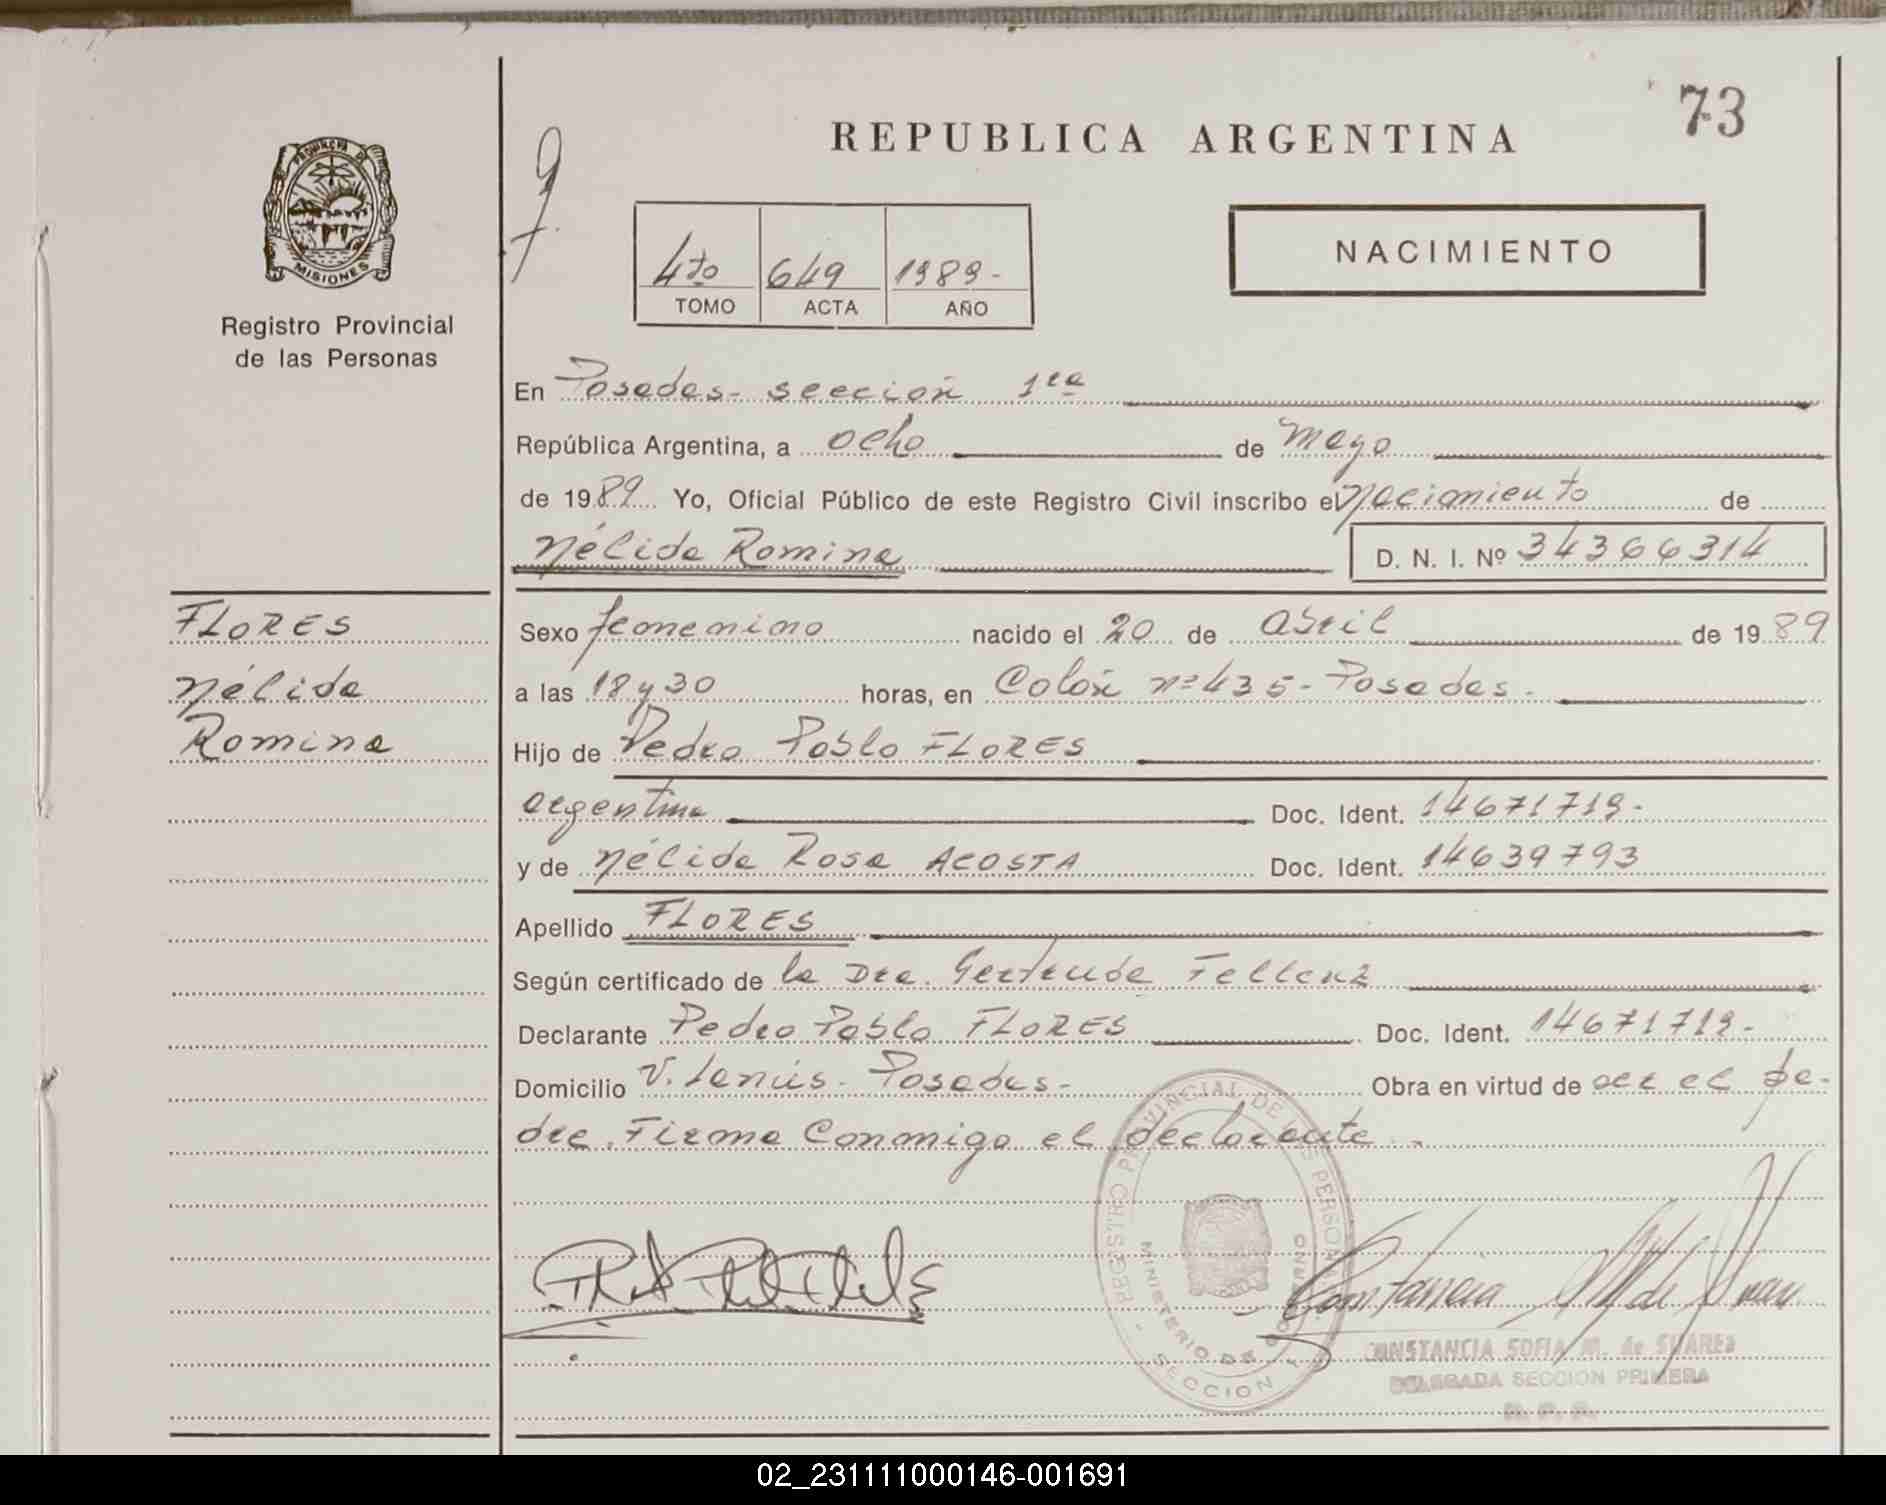 73
REPUBLICA ARGENTINA
PROVINCIA DE
MISIONES
Registro Provincial
de las Personas
4to 649 1989-
TOMO ACTA AÑO
NACIMIENTO
En Posadas- sección 1ra
República Argentina, a ocho de Mayo
de 1989 Yo, Oficial Público de este Registro Civil inscribo el Nacimiento de
Nélida Romina D. N. I. Nº 34366314
FLORES
Nélida
Romina
Sexo femenino nacido el 20 de Abril de 1989
a las 18 y 30 horas, en Colón nº 435- Posadas-
Hijo de Pedro Pablo FLORES
argentino Doc. Ident. 14671719-
y de Nélida Rosa ACOSTA Doc. Ident. 14639793
Apellido FLORES
Según certificado de la Dra. Gertrude Fellenz
Declarante Pedro Pablo FLORES Doc. Ident. 14671719-
Domicilio V. Lanús- Posadas- Obra en virtud de ser el pa-
dre. Firma Conmigo el declarante.
REGISTRO PROVINCIAL DE LAS PERSONAS
MINISTERIO DE GOBIERNO
- SECCION 1
CONSTANCIA SOFIA M. de SUAREZ
DELEGADA SECCION PRIMERA
R. P. P.
02_231111000146-001691